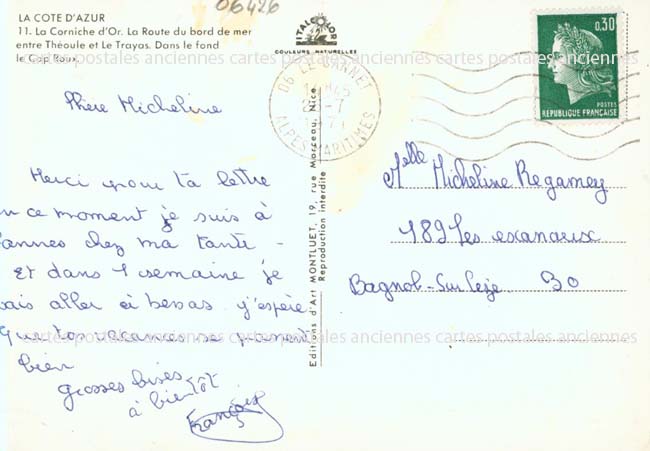 06426
LA COTE D'AZUR
11. La Corniche d'Or. La Route du bord de mer
entre Théoule et Le Trayas. Dans le fond
le Cap Roux.
ITALCOLOR
COULEURS NATURELLES
06 LE CANNET
ALPES MARITIMES
0,30
POSTES
REPUBLIQUE FRANÇAISE
cartes postales anciennes cartes postales anciennes cartes postales anciennes
Chère Micheline
Merci pour ta lettre
en ce moment je suis à
Cannes chez ma tante -
Et dans 1 semaine je
vais aller à bessas. j'espère
Que tes vacances se passent
bien
grosses bises
à bientôt
Françoise
Editions d'Art MONTLUET, 19, rue Marceau, Nice
Reproduction interdite
Melle Micheline Regamey
189 Les escanaux
Bagnol-Sur Cèze 30
cartes postales anciennes cartes postales anciennes cartes postales anciennes